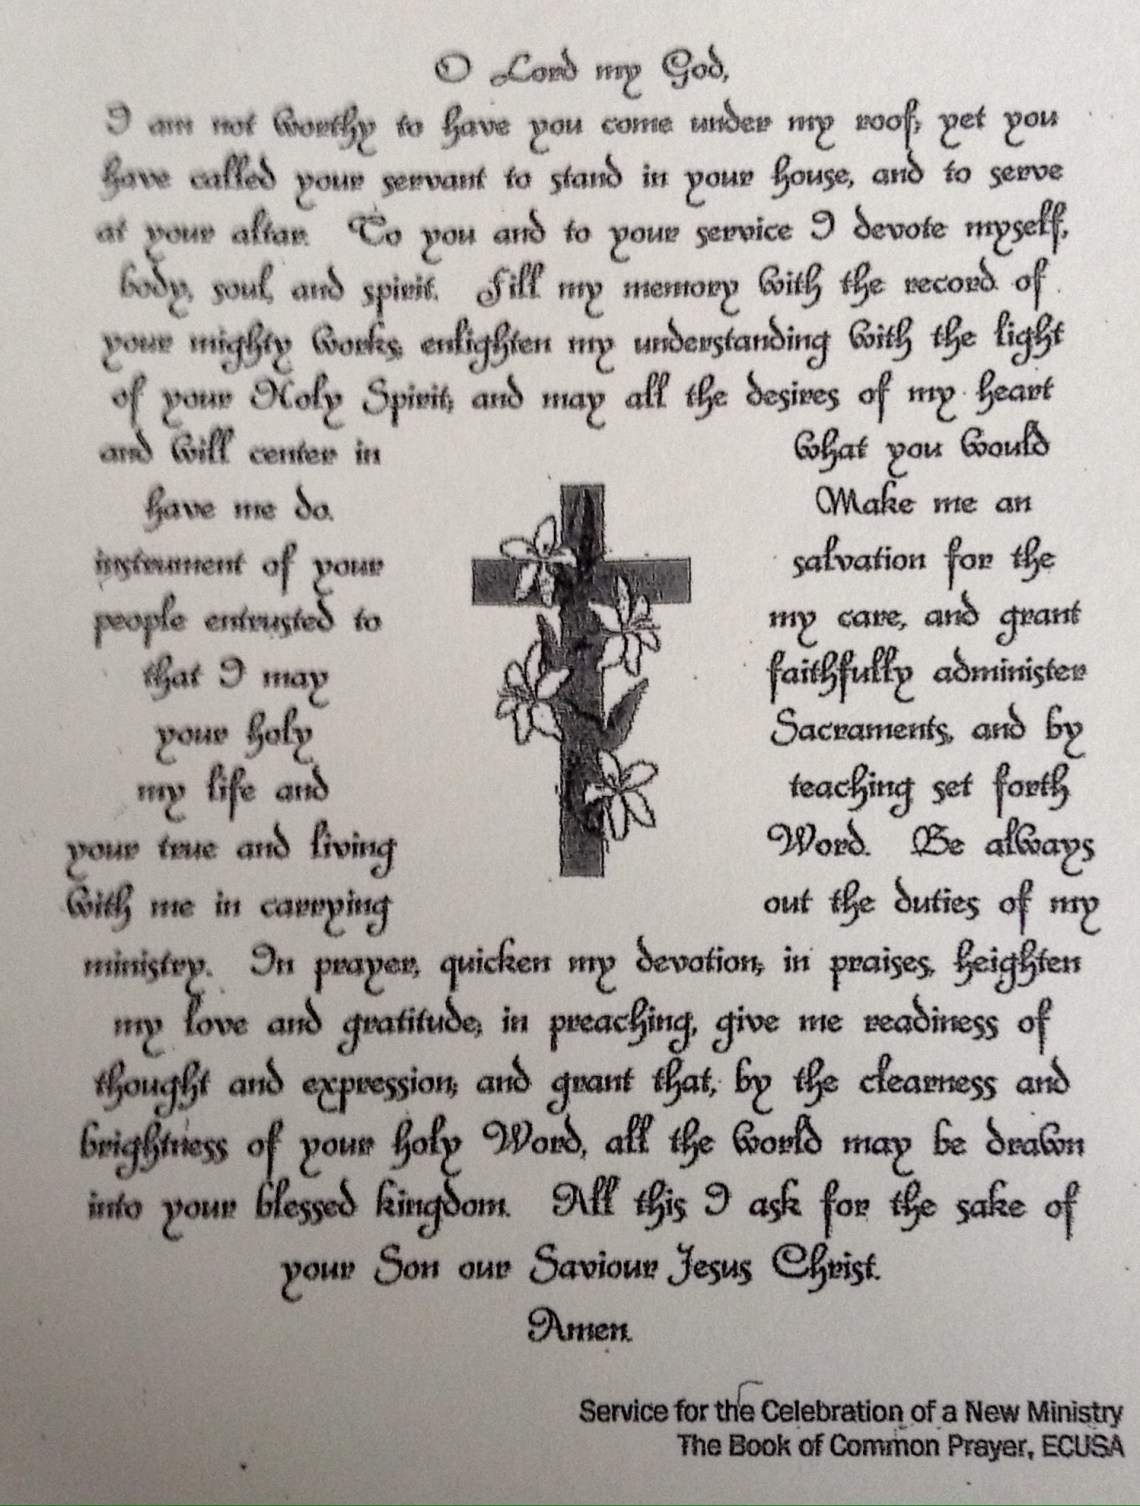 O Lord my God,
I am not worthy to have you come under my roof; yet you
have called your servant to stand in your house, and to serve
at your altar. To you and to your service I devote myself,
body, soul, and spirit. Fill my memory with the record of
your mighty works; enlighten my understanding with the light
of your Holy Spirit; and may all the desires of my heart
and will center in what you would
have me do. Make me an
instrument of your salvation for the
people entrusted to my care, and grant
that I may faithfully administer
your holy Sacraments, and by
my life and teaching set forth
your true and living Word. Be always
with me in carrying out the duties of my
ministry. In prayer, quicken my devotion; in praises, heighten
my love and gratitude; in preaching, give me readiness of
thought and expression; and grant that, by the clearness and
brightness of your holy Word, all the world may be drawn
into your blessed kingdom. All this I ask for the sake of
your Son our Saviour Jesus Christ.
Amen.
Service for the Celebration of a New Ministry
The Book of Common Prayer, ECUSA